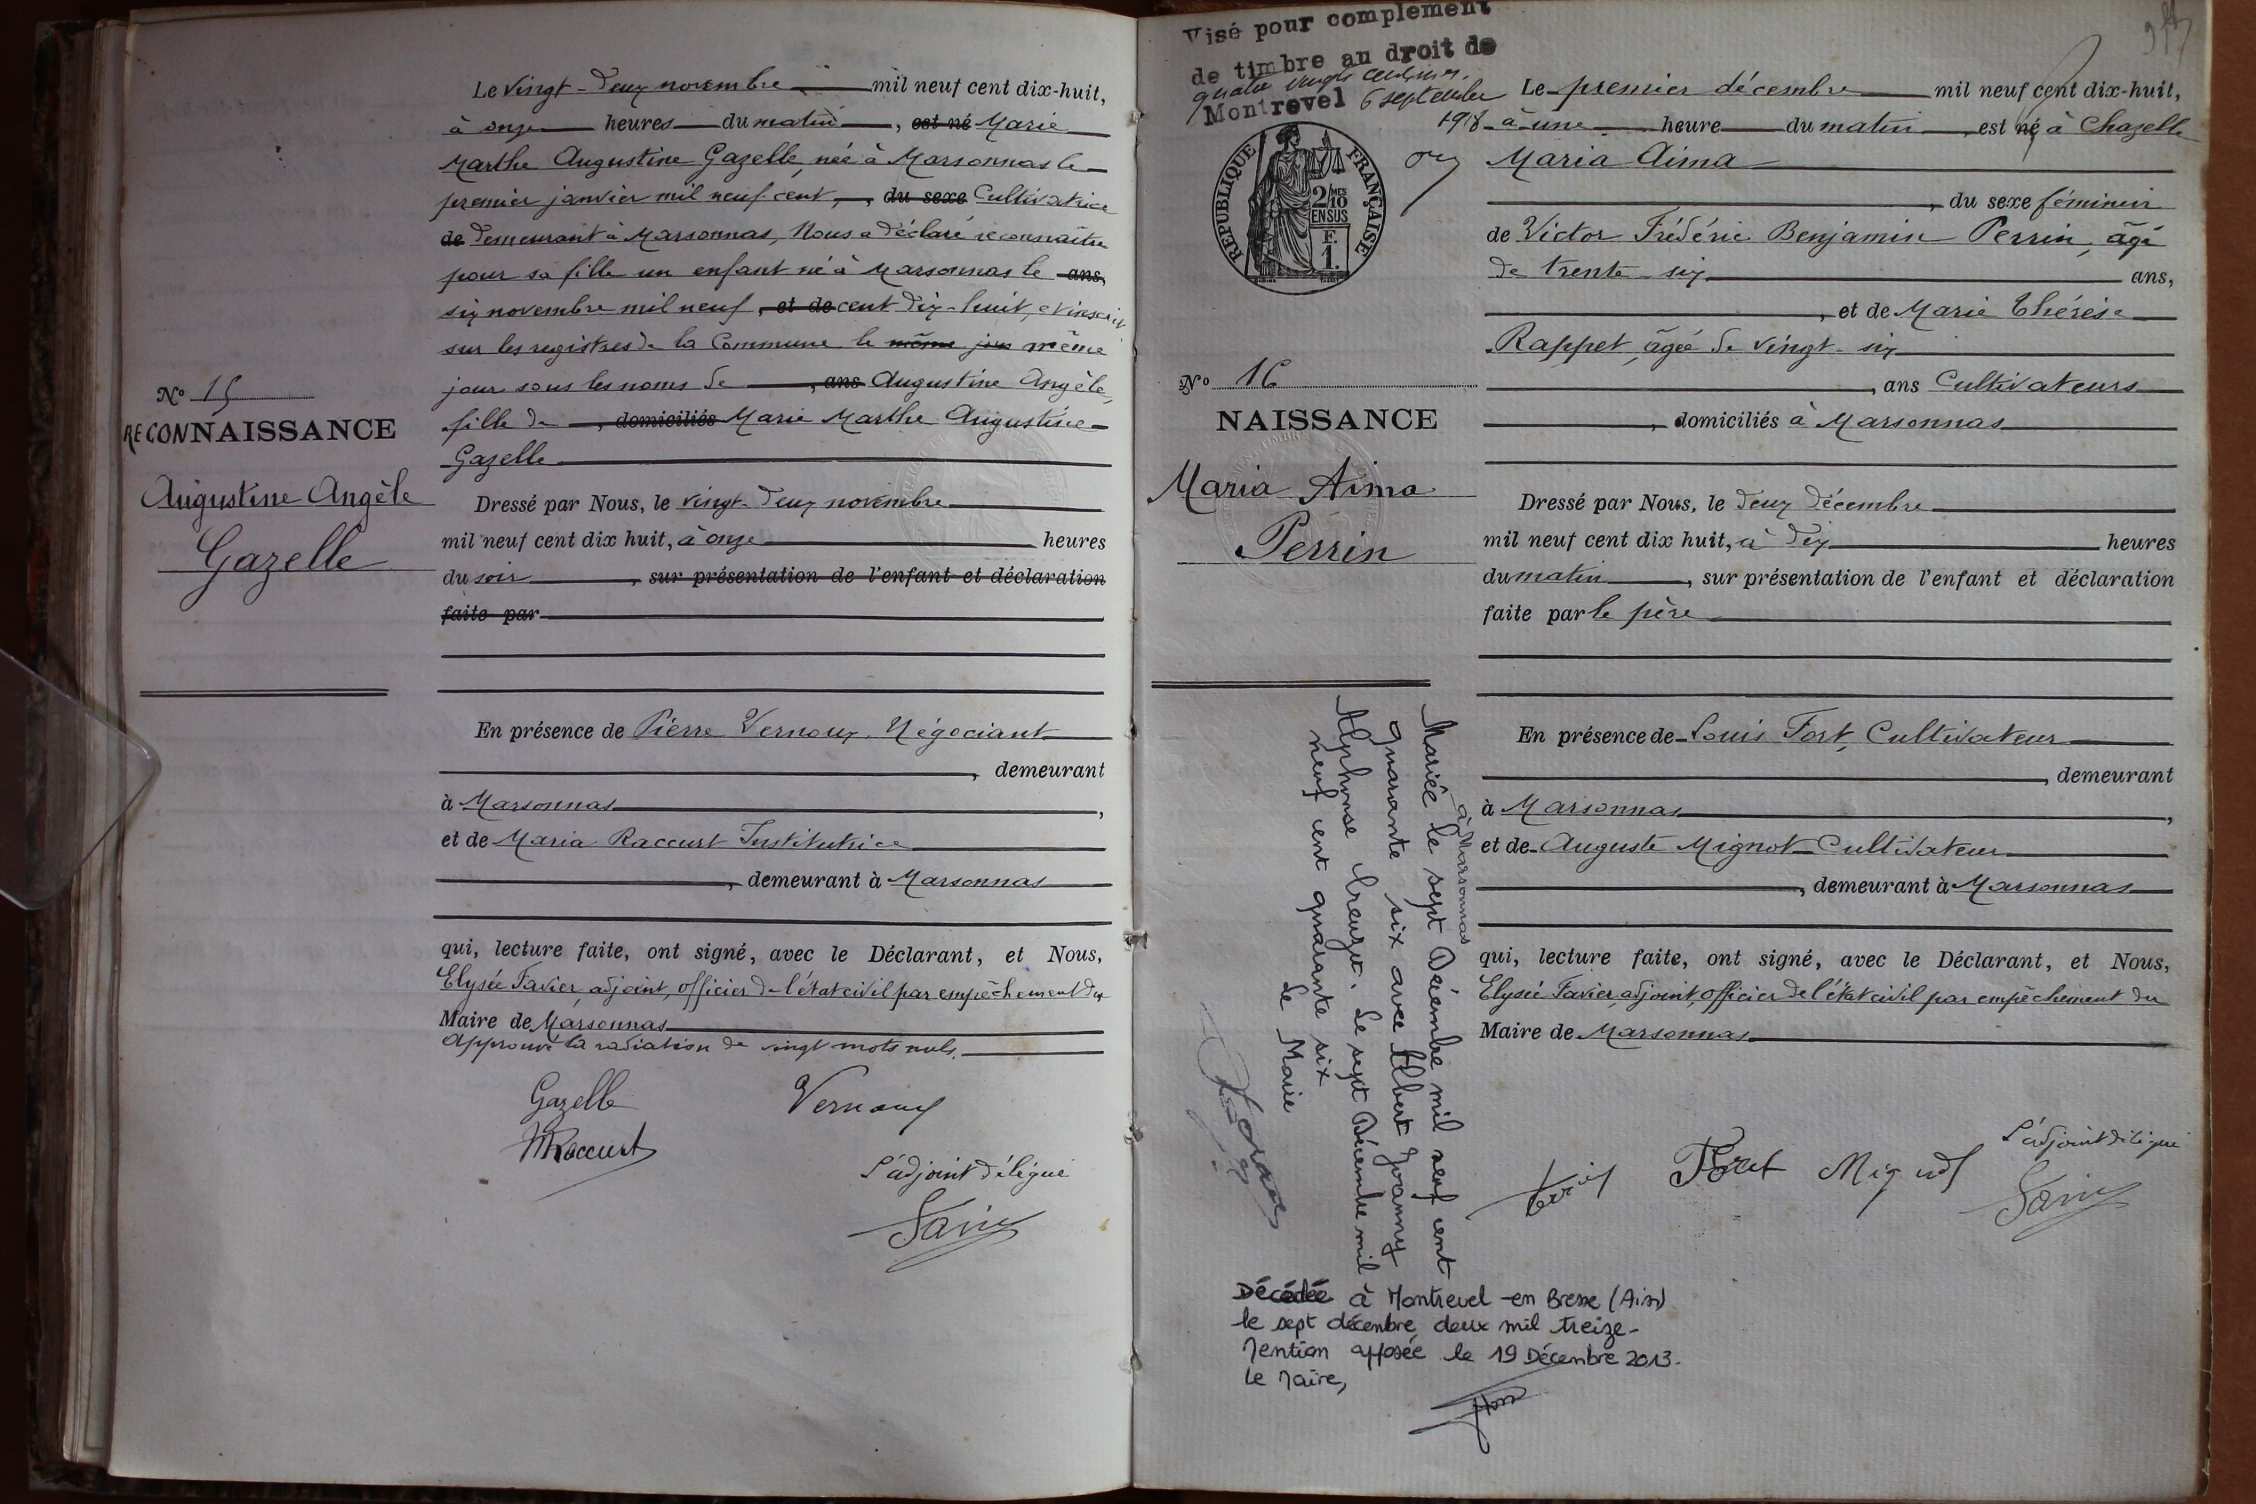 Le vingt-deux novembre mil neuf cent dix-huit,
à onze heures du matin, est né Marie
Marthe Augustine Gazelle, née à Marsonnas le
premier janvier mil neuf cent, du sexe Cultivatrice
de demeurant à Marsonnas, Nous a déclaré reconnaître
pour sa fille un enfant né à Marsonnas le ans,
six novembre mil neuf, et de cent dix-huit, et inscrit
sur les registres de la Commune le même jour même
jour sous les noms de, ans Augustine Angèle,
fille de, domiciliés Marie Marthe Augustine
Gazelle
No 15
RECONNAISSANCE
Augustine Angèle
Gazelle
Dressé par Nous, le vingt-deux novembre
mil neuf cent dix huit, à onze heures
du soir, sur présentation de l'enfant et déclaration
faite par
En présence de Pierre Vernoux, Négociant
, demeurant
à Marsonnas,
et de Maria Raccurt Institutrice
, demeurant à Marsonnas
qui, lecture faite, ont signé, avec le Déclarant, et Nous,
Elysée Favier, adjoint, officier de l'état civil par empêchement du
Maire de Marsonnas
Approuvé la radiation de vingt mots nuls.
Gazelle Vernoux
MRaccurt
L'adjoint délégué
Favier
Visé pour complément
de timbre au droit de
quatre vingts centimes.
Montrevel 6 septembre
1918
RÉPUBLIQUE FRANÇAISE
2/10 MES
EN SUS
F.
1.
Le premier décembre mil neuf cent dix-huit,
à une heure du matin, est né à Chazelle
Maria Aima
, du sexe féminin
de Victor Frédéric Benjamin Perrin, âgé
de trente-six ans,
, et de Marie Thérèse
Rappet, âgée de vingt-six
, ans Cultivateurs
, domiciliés à Marsonnas
No 16
NAISSANCE
Maria Aima
Perrin
Dressé par Nous, le deux décembre
mil neuf cent dix huit, à dix heures
du matin, sur présentation de l'enfant et déclaration
faite par le père
En présence de Louis Fort, Cultivateur
, demeurant
à Marsonnas,
et de Auguste Mignot Cultivateur
, demeurant à Marsonnas
qui, lecture faite, ont signé, avec le Déclarant, et Nous,
Elysée Favier, adjoint, officier de l'état civil par empêchement du
Maire de Marsonnas
Perrin Fort Mignot
L'adjoint délégué
Favier
à Marsonnas
Mariée le sept Décembre mil neuf cent
quarante six avec Albert Joanny
Alphonse Creuzet. Le sept Décembre mil
neuf cent quarante six
Le Maire
Décédée à Montrevel-en Bresse (Ain)
le sept décembre deux mil treize-
Mention apposée le 19 Décembre 2013.
Le Maire,